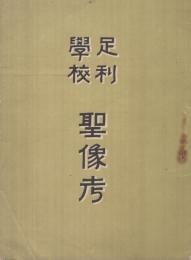 足利
學校
聖像考